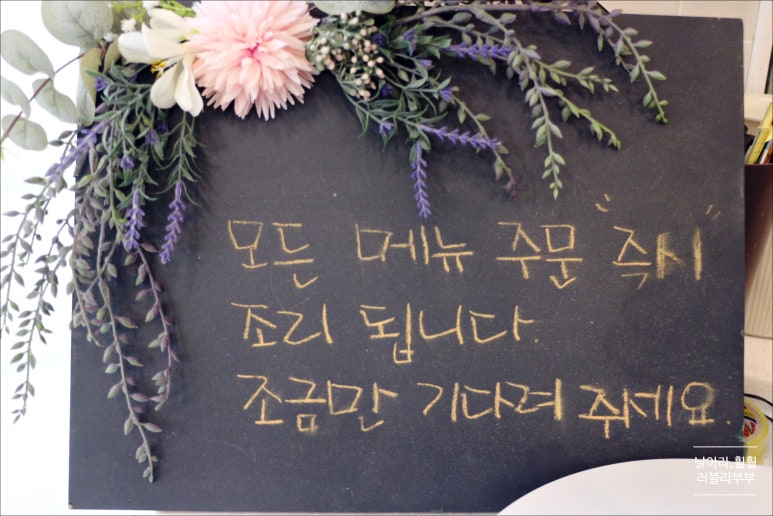 모든 메뉴 주문 "즉시"
조리 됩니다.
조금만 기다려 주세요.
날아라, 훨훨
러블리부부